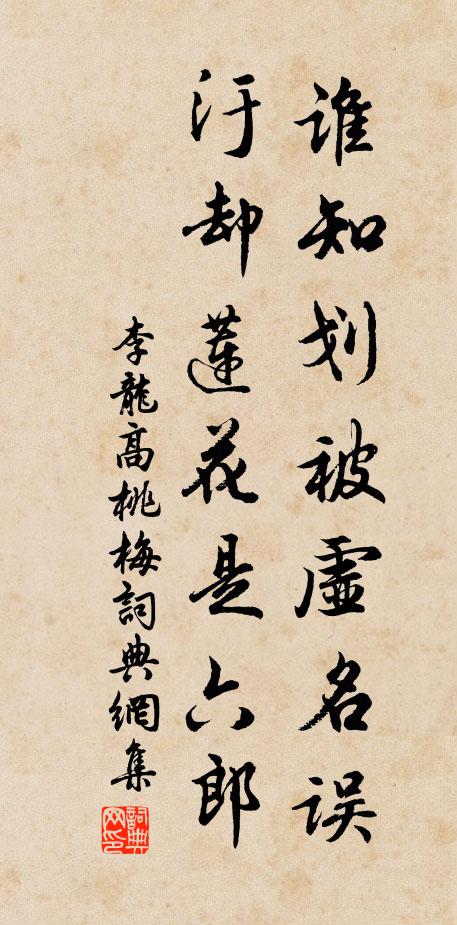 谁知划被虚名误
汙却蓮花是六郎
李龍高桃梅詞典網集
詞典網印